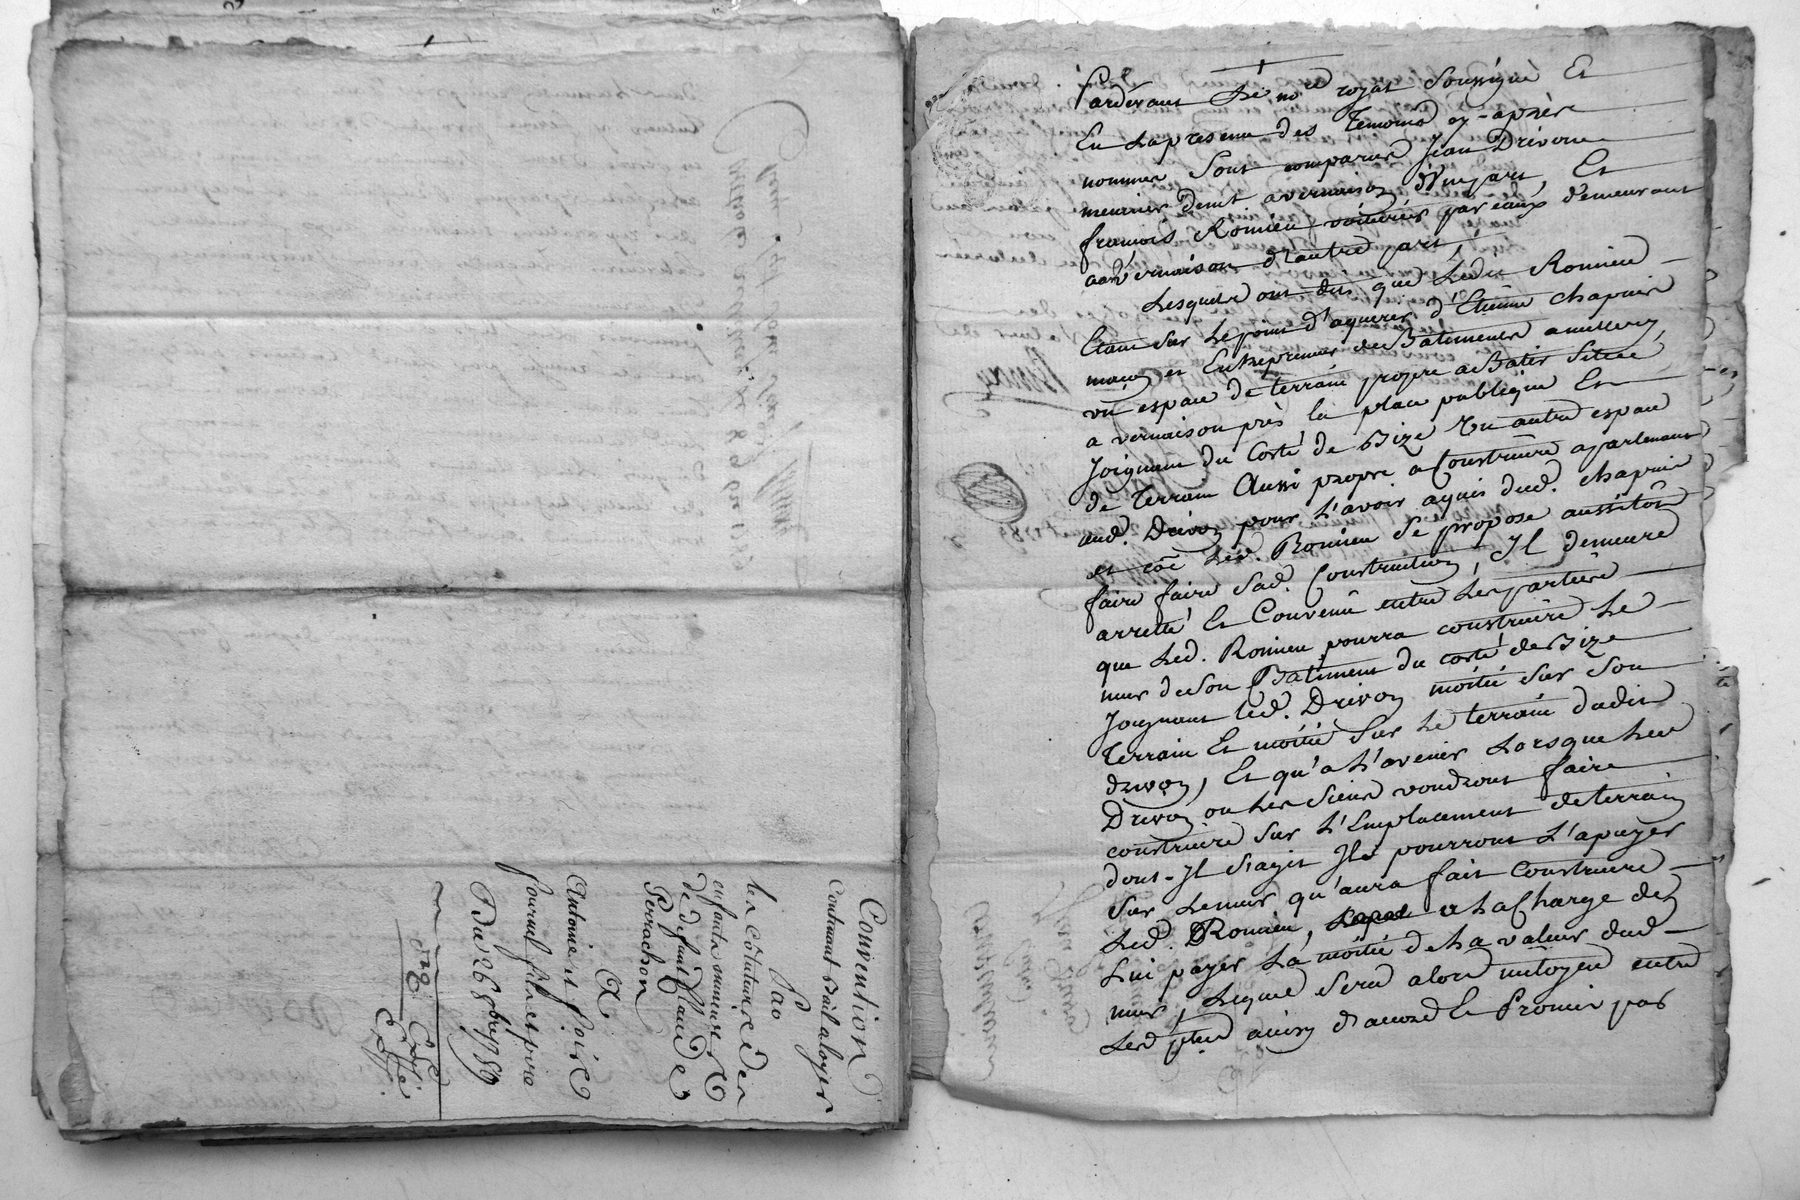 Convention
Contenant bail a loyer
Par
les cotuteurs des
enfants mineurs
de defunt Claude
Perrachon
A
Antoine et Poire
fournel filz et pere
Du 26 8bre 1786
Expé
Pardevant Le no.re royal Soussigné Et
En La presence des Temoins cy-après
nommés Sont comparus Jean Drivon
meunier demt a vernaison d'une part, Et
françois Romieu voiturier par eaux demeurant
aud vernaison d'autre part,
Lesquels ont dit que Ledit Romieu
Etant Sur Le point d'aquerir d'Etienne chapuis
maçon et Entrepreneur de Batiments a millery,
un espace de terrain propre a Batir Situé
a vernaison près la place publique Et
Joignant du Costé de Bize un autre espace
de Terrain Aussi propre a Construire apartenant
aud. Drivon pour L'avoir aquis dud. chapuis
et coe Led. Romieu Se propose aussitôt
faire faire Sad. Construction, Il demeure
arretté Et Convenu entre Les parties
que Led. Romieu pourra construire Le
mur de Son Batiment du costé de Bize
Joignant led. Drivon moitié Sur Son
Terrain Et moitié Sur Le terrain dudit
drivon, Et qu'a L'avenir Lorsque Led
Drivon ou Les Siens voudront faire
construire Sur L'Emplacement de terrain
dont Il S'agit Ils pourront L'apuyer
Sur Le mur qu'aura fait Construire
Led. Romieu, a La Charge de
Lui payer La moitié de La valeur dud
mur, Lequel Sera alors mitoyen entre
d'accord Le Promis par